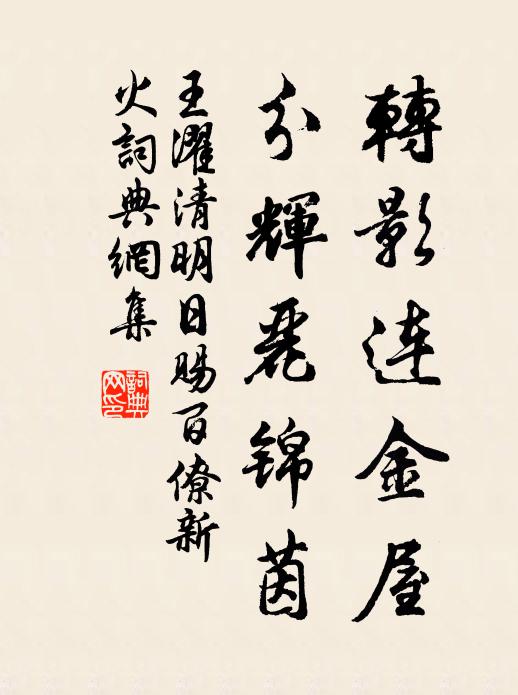 轉影连金屋
分輝麗锦茵
王濯清明日賜百僚新
火詞典網集
詞典網印